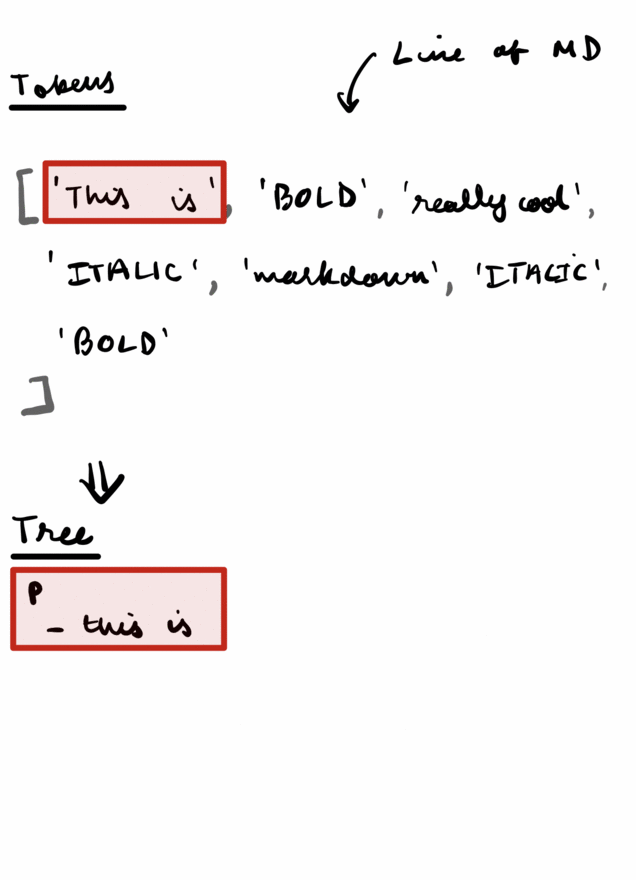 Line of MD
Tokens
['This is', 'BOLD', 'really cool',
'ITALIC', 'markdown', 'ITALIC',
'BOLD'
]
⇓
Tree
P
- this is